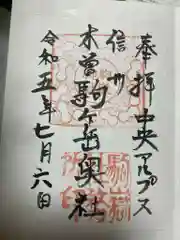 奉拝 中央アルプス
信州
木曽駒ヶ岳奥社
令和五年七月六日
駒嶽